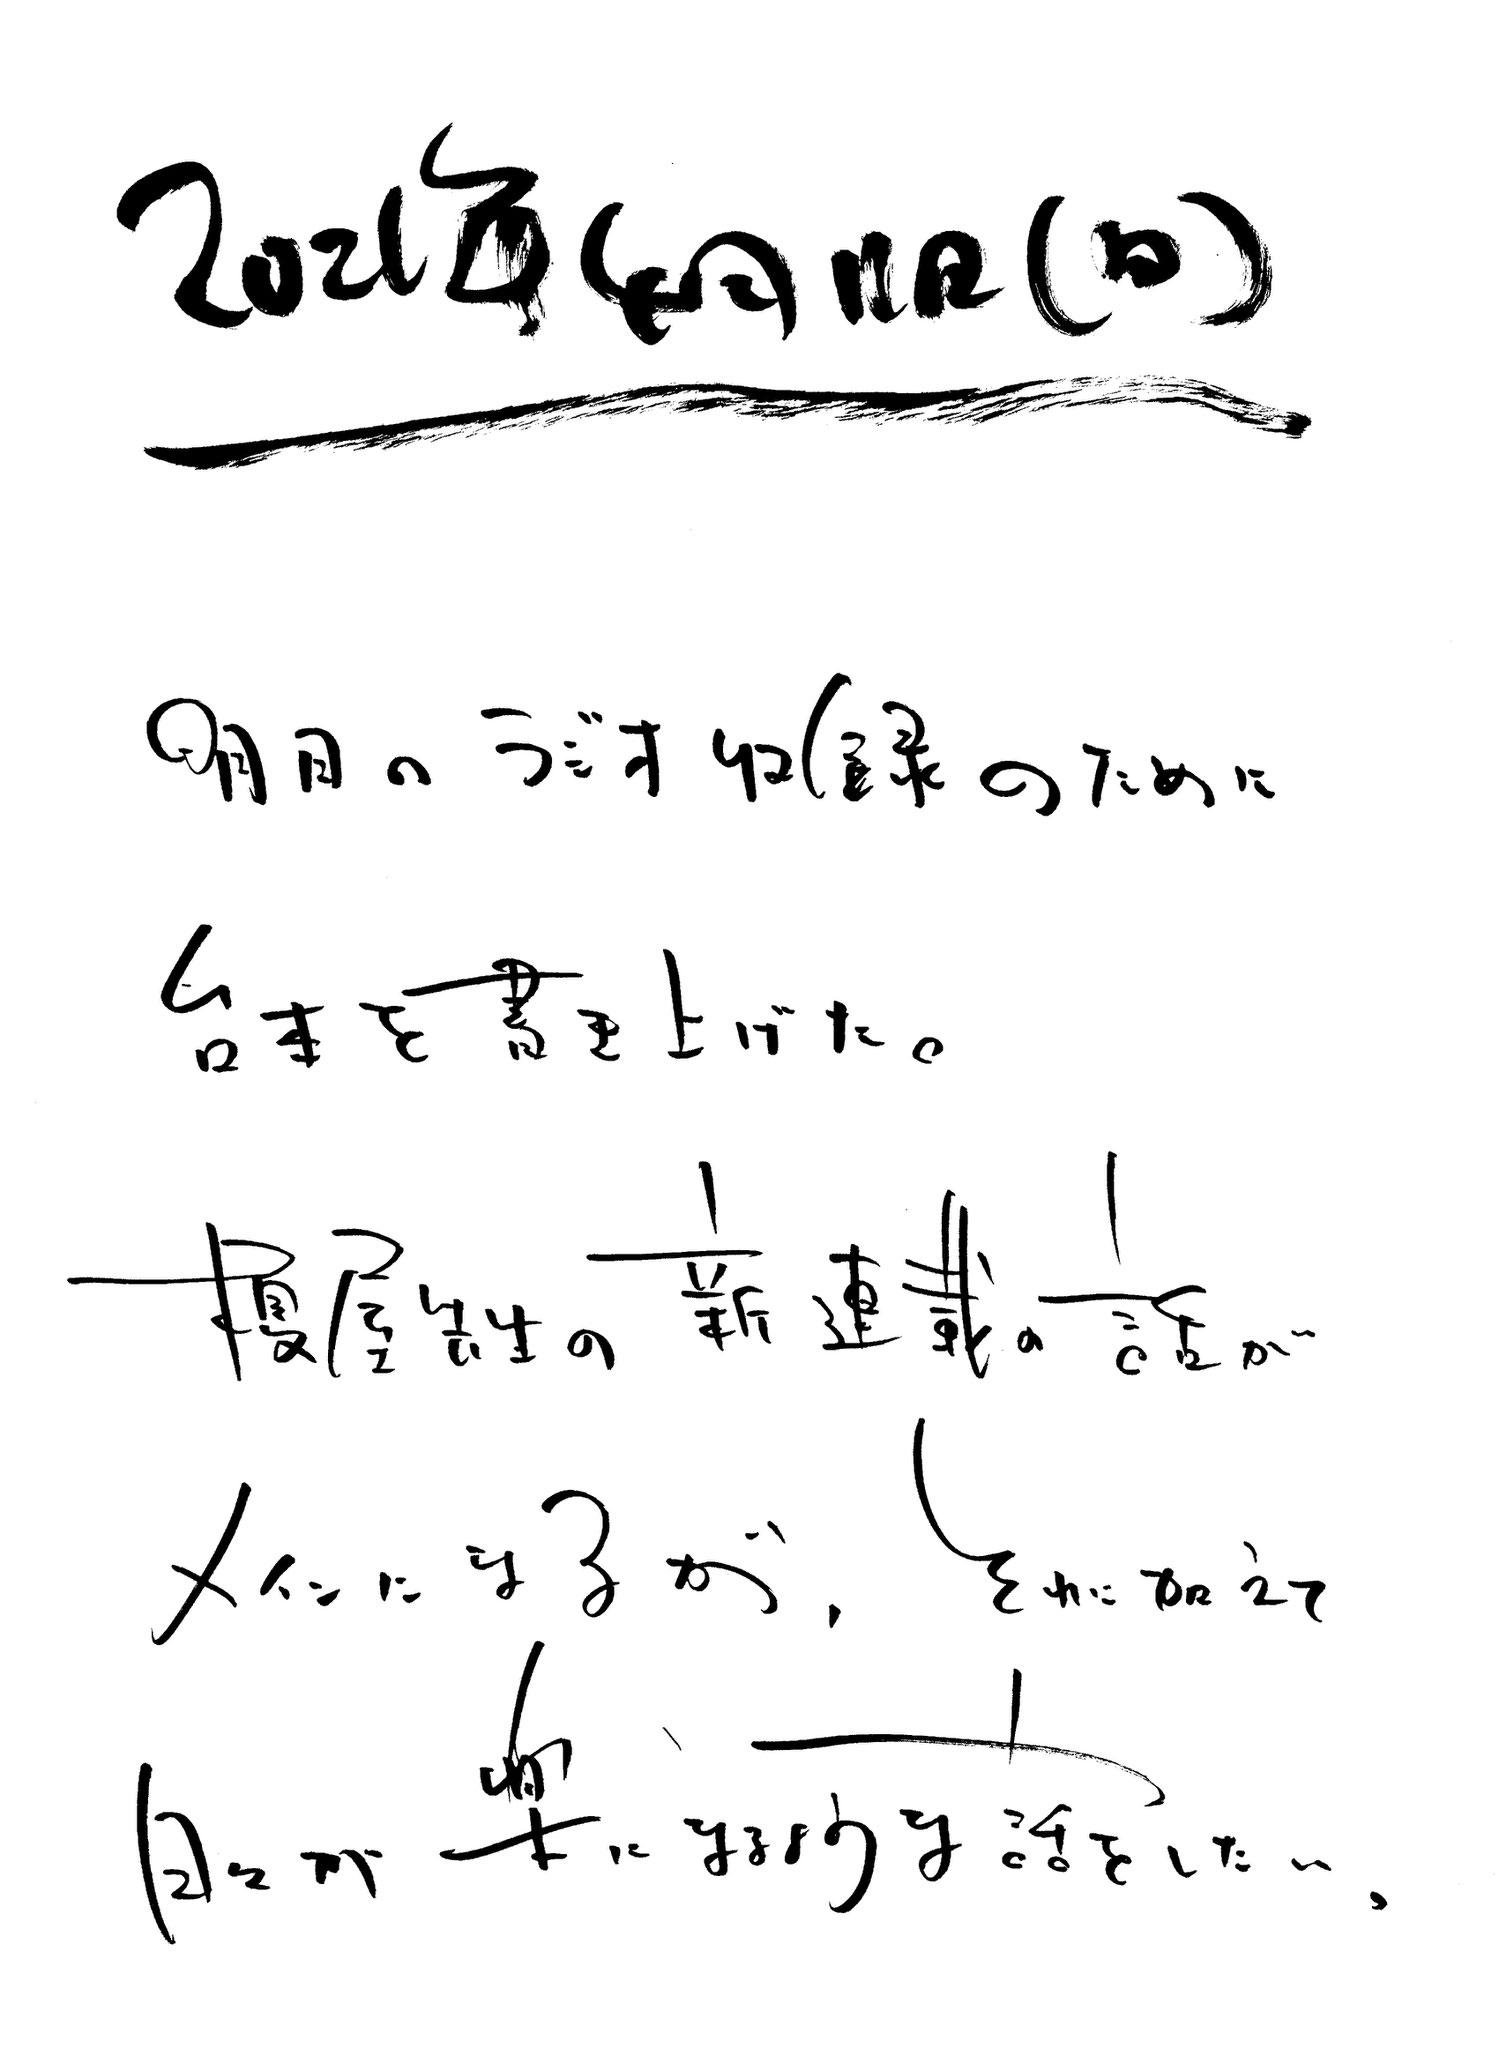 2021年4月11日(日)
明日のラジオ収録のために
台本を書き上げた。
榎屋先生の新連載の話が
メインになるが、それに加えて
日々が楽になるような話をしたい、